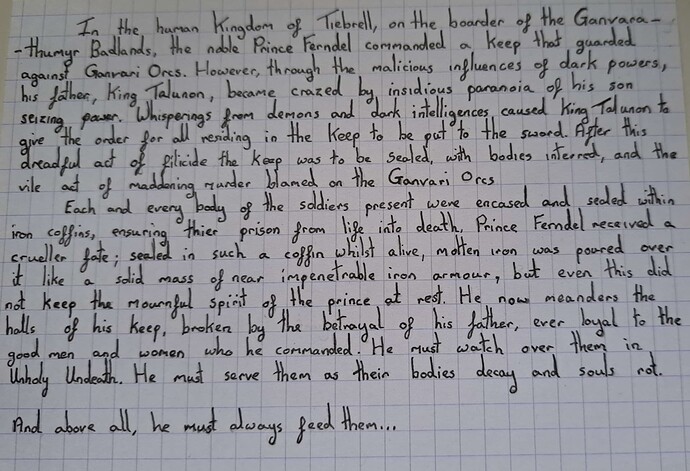 In the human Kingdom of Tiebrell, on the boarder of the Ganvara-
-thumyr Badlands, the noble Prince Ferndel commanded a keep that guarded
against Ganvari Orcs. However, through the malicious influences of dark powers,
his father, King Talunon, became crazed by insidious paranoia of his son
seizing power. Whisperings from demons and dark intelligences caused King Talunon to
give the order for all residing in the keep to be put to the sword. After this
dreadful act of filicide the keep was to be sealed, with bodies interred, and the
vile act of maddening murder blamed on the Ganvari Orcs
Each and every body of the soldiers present were encased and sealed within
iron coffins, ensuring thier prison from life into death. Prince Ferndel received a
crueller fate; sealed in such a coffin whilst alive, molten iron was poured over
it like a solid mass of near impenetrable iron armour, but even this did
not keep the mournful spirit of the prince at rest. He now meanders the
halls of his keep, broken by the betrayal of his father, ever loyal to the
good men and women who he commanded. He must watch over them in
Unholy Undeath. He must serve them as their bodies decay and souls rot.
And above all, he must always feed them...